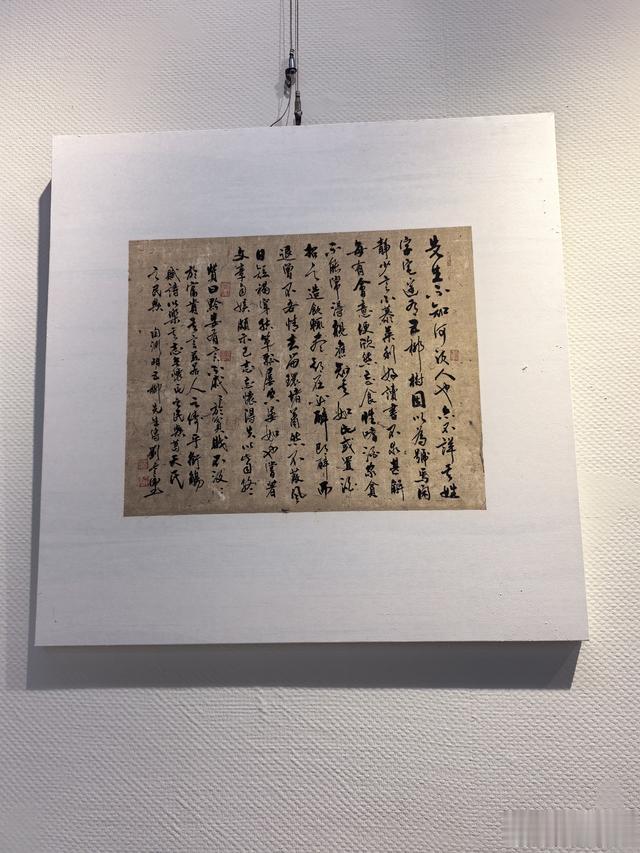 先生不知何許人也亦不詳其姓
字宅邊有五柳樹因以為號焉閑
靜少言不慕榮利好讀書不求甚解
每有會意便欣然忘食性嗜酒家貧
不能常得親舊知其如此或置酒
招之造飲輒盡期在必醉既醉而
退曾不吝情去留環堵蕭然不蔽風
日短褐穿結簞瓢屢空晏如也嘗著
文章自娛頗示己志忘懷得失以此自終
贊曰黔婁有言不戚〻於貧賤不汲〻
於富貴其言茲若人之儔乎銜觴
賦詩以樂其志無懷氏之民歟葛天氏
之民歟 陶淵明五柳先生傳 劉